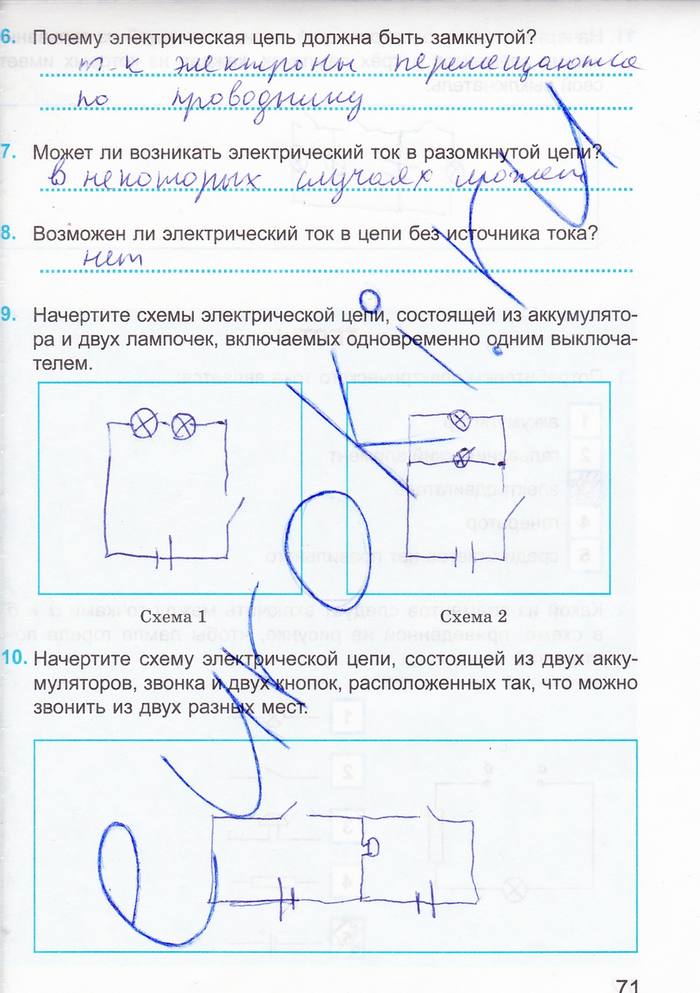 6. Почему электрическая цепь должна быть замкнутой?
т.к электроны перемещаются
по проводнику
7. Может ли возникать электрический ток в разомкнутой цепи?
в некоторых случаях может
8. Возможен ли электрический ток в цепи без источника тока?
нет
9. Начертите схемы электрической цепи, состоящей из аккумулято-
ра и двух лампочек, включаемых одновременно одним выключа-
телем.
Схема 1
Схема 2
10. Начертите схему электрической цепи, состоящей из двух акку-
муляторов, звонка и двух кнопок, расположенных так, что можно
звонить из двух разных мест.
71